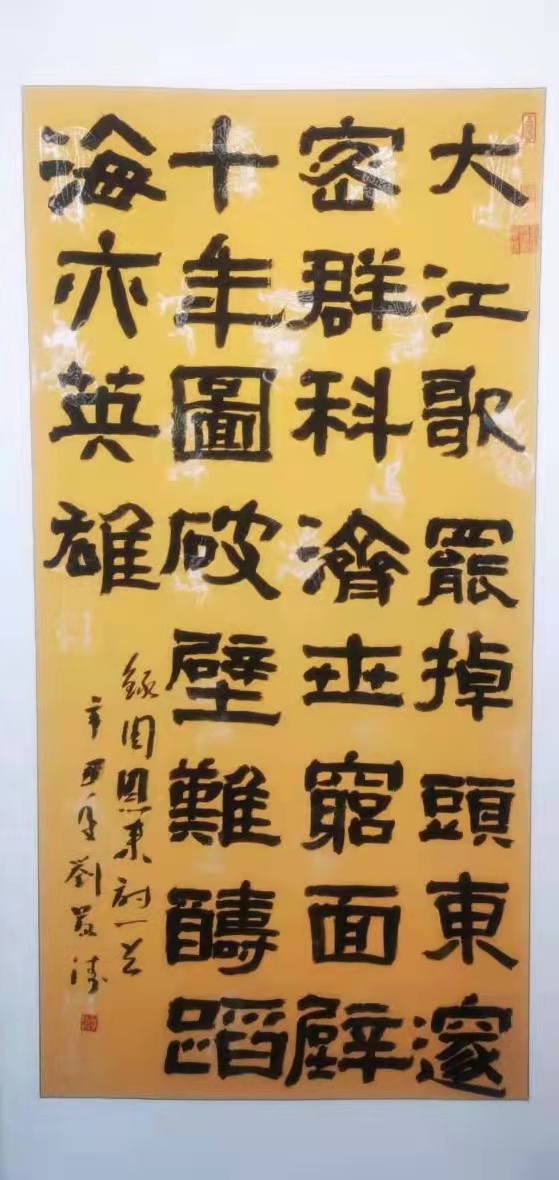 大江歌罷掉頭東邃
密群科濟世窮面壁
十年圖破壁難醻蹈
海亦英雄
錄周恩來詩一首
辛 年劉